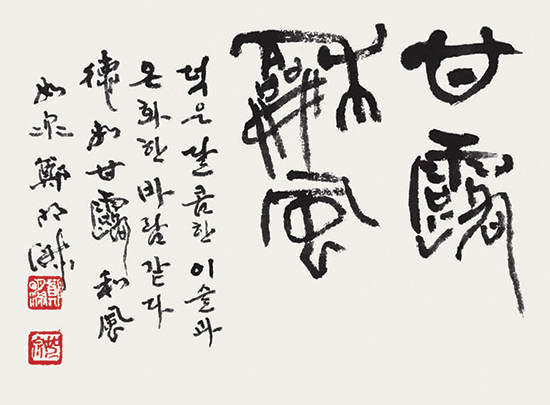 甘露
龢風
덕은 달콤한 이슬과
온화한 바람 같다
德如甘露和風
如 鄭